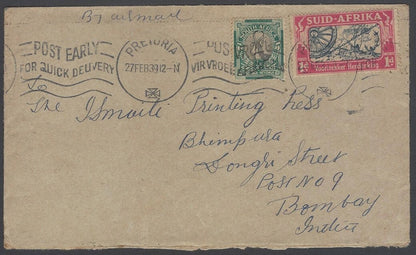 By airmail
POST EARLY
FOR QUICK DELIVERY
PRETORIA
27 FEB 39 12-N
POS
VIR VROEË
SUID-AFRIKA
Voortrekker Herdenking
1d 1d
To
The Ismaili Printing Press
Bhimpura
Dongri Street
Post No 9
Bombay
India